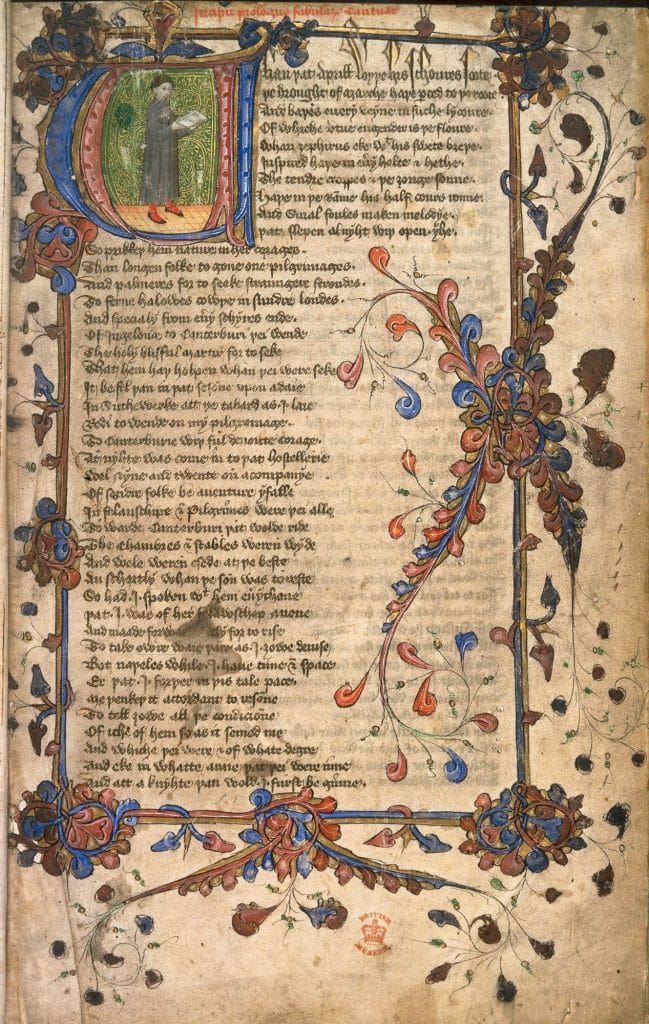 Incipit prologus fabularum Cantuar
Whan þat Aprill wyþ his schoures soote
þe drought of Marche haþ perced to þe roote
And baþed euery veyne in suche lycoure.
Of whiche vertue engendred is þe floure.
Whan zephirus eke wt his swete breþe.
Inspired haþe in eûy holte & heþe.
The tendre croppes & þe ȝonge sonne.
Haþe in þe Rame his half cours ronne.
And smal foules maken melodye.
þat slepen al nyht wiþ open yhe.
So prikkeþ hem nature in her corages.
Than longen folke to gone one pilgrimages.
And palmeres for to seeke straungere strondes.
To ferne halowes cowþe in sundre londes.
And specialy from eûy schyres ende.
Of Ingelonde to Canterburi þei wende
The holy blisful martir for to seke
That hem haþ holpen whan þei were seke
It befell þan in þat sesone vpon a daie
In Suthewerke att þe tabard as I laie
Redi to wende on my pilgremage.
To Canterburie wiþ ful deuoute corage.
At nyhte was come in to þat hostellerie
Wel nyne and twente on a companye
Of sondre folke be auenture yfalle
In felauschipe & Pilgrimes were þei alle
To warde Canterburi þat wolde ride
The Chambres & stables weren wyde
And wele weren esede at þe beste
An schortly whan þe son was to reste
So had .I. spoken wt hem eûychone
þat .I. was of her felawschep anone
And maade forwarde erly for to rise
To take owre waie þare as .I. ȝowe deuise
Bot naþeles while .I. haue time & space
Er þat .I. forþer in þis tale pace.
Me þenkeþ it accordant to resone
To tell ȝowe all þe condicione
Of iche of hem so as it semed me
And whiche þei were & of whate degre
And eke in whatte araie þat þei were inne
And att a knyhte þan wold .I. furst be gynne.
BRITISH
MUSEUM